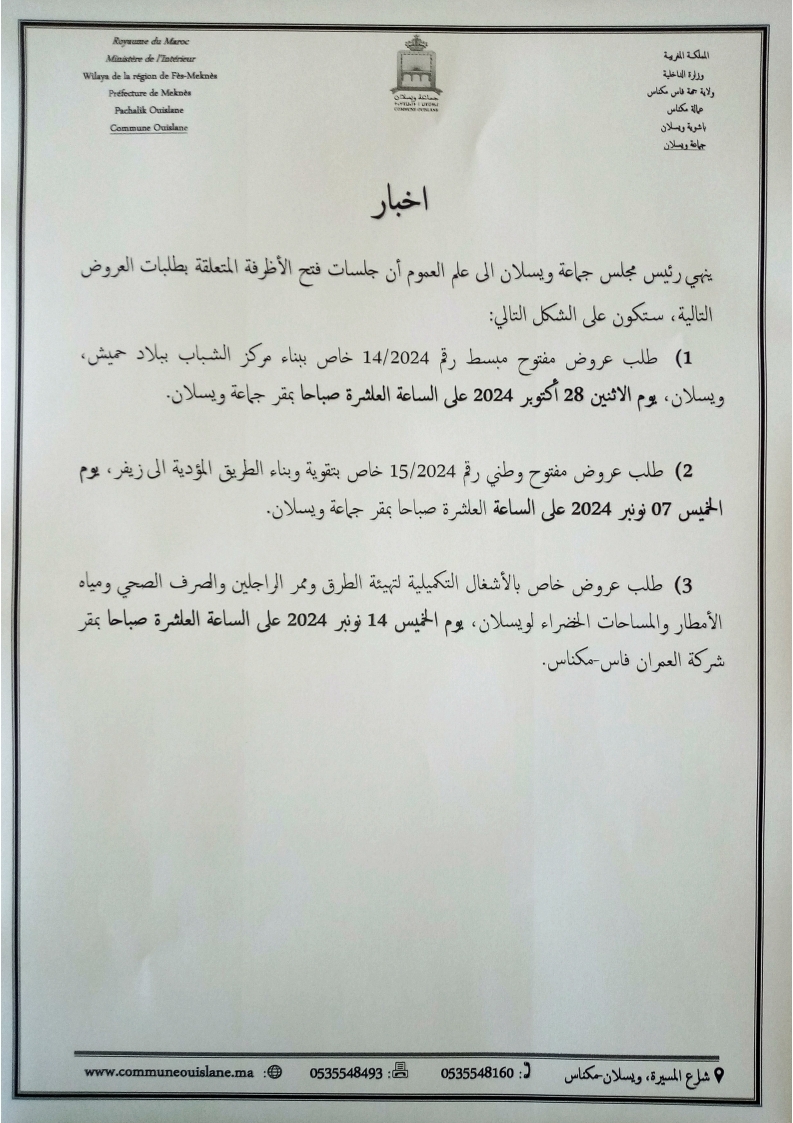 Royaume du Maroc
Ministère de l'Intérieur
Wilaya de la région de Fès-Meknès
Préfecture de Meknès
Pachalik Ouislane
Commune Ouislane
جماعة ويسلان
COMMUNE OUISLANE
المملكة المغربية
وزارة الداخلية
ولاية جهة فاس مكناس
عمالة مكناس
باشوية ويسلان
جماعة ويسلان
اخبار
ينهي رئيس مجلس جماعة ويسلان الى علم العموم أن جلسات فتح الأظرفة المتعلقة بطلبات العروض
التالية، ستكون على الشكل التالي:
1) طلب عروض مفتوح مبسط رقم 14/2024 خاص ببناء مركز الشباب ببلاد حميش،
ويسلان، يوم الاثنين 28 أكتوبر 2024 على الساعة العاشرة صباحا بمقر جماعة ويسلان.
2) طلب عروض مفتوح وطني رقم 15/2024 خاص بتقوية وبناء الطريق المؤدية الى زيفر، يوم
الخميس 07 نونبر 2024 على الساعة العاشرة صباحا بمقر جماعة ويسلان.
3) طلب عروض خاص بالأشغال التكميلية لتهيئة الطرق وممر الراجلين والصرف الصحي ومياه
الأمطار والمساحات الخضراء لويسلان، يوم الخميس 14 نونبر 2024 على الساعة العاشرة صباحا بمقر
شركة العمران فاس-مكناس.
شارع المسيرة، ويسلان-مكناس
: 0535548160
: 0535548493
: www.communeouislane.ma